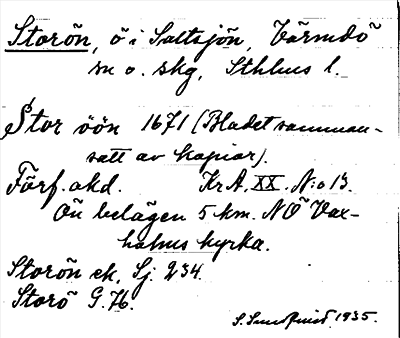 Storön, ö i Saltsjön, Värmdö
sn o. skg, Sthlms l.
Stor öön 1671 (Bladet samman-
satt av kopior).
Förf. okd. KrA. XX. N:o 13.
Ön belägen 5 km. NÖ Vax-
holms kyrka.
Storön ek. Sj. 234.
Storö G. 76.
S. Sundquist 1935.